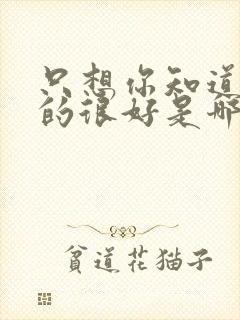 只想你知道
的很好是那
貧道花猫子